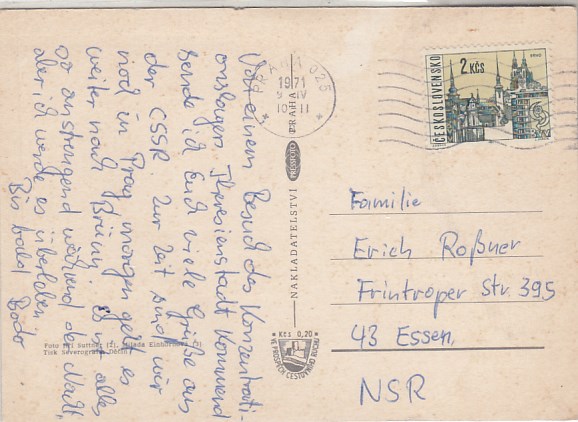 Von einem Besuch des Konzentrati-
onslagers Theresienstadt kommend
sende ich Euch viele Grüße aus
der CSSR. Zur Zeit sind wir
noch in Prag, morgen geht es
weiter nach Brünn. Es ist alles
so anstrengend während der Nacht,
aber ich werde es überleben.
Bis bald Bodo
Foto Jiří Suttner (2), Milada Einhornová (2)
Tisk Severografia Děčín
NAKLADATELSTVÍ PRESSFOTO PRAHA
Kčs 0,20
VE PROSPĚCH CESTOVNÍHO RUCHU
PRAHA 025
1971
9. IV
10-11
ČESKOSLOVENSKO
2 KČS
BRNO
Familie
Erich Roßner
Frintroper Str. 395
43 Essen,
NSR